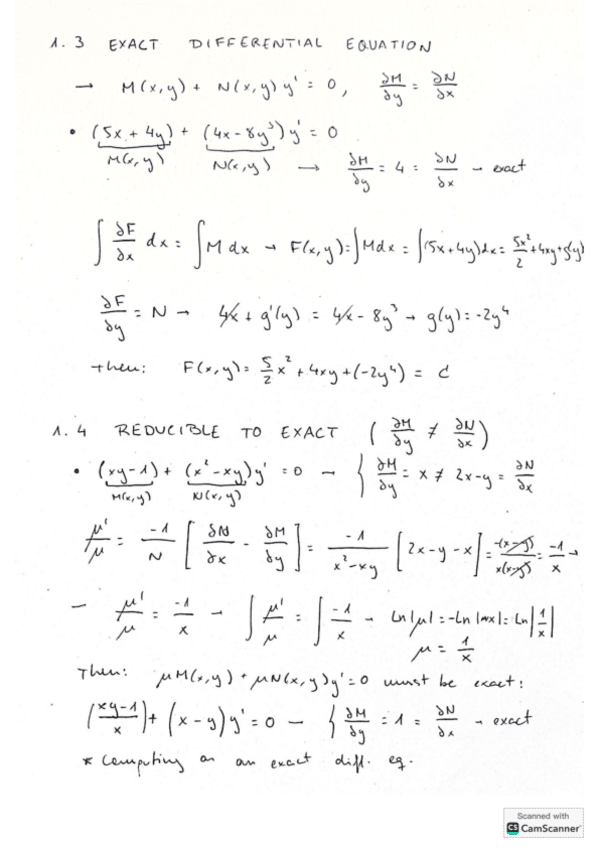 1.3 EXACT DIFFERENTIAL EQUATION
→ M(x,y) + N(x,y) y' = 0, ∂M/∂y = ∂N/∂x
• (5x + 4y) + (4x - 8y³) y' = 0
M(x,y) N(x,y) → ∂M/∂y = 4 = ∂N/∂x → exact
∫ ∂F/∂x dx = ∫ M dx → F(x,y) = ∫ M dx = ∫ (5x+4y) dx = 5x²/2 + 4xy + g(y)
∂F/∂y = N → 4x + g'(y) = 4x - 8y³ → g(y) = -2y⁴
then: F(x,y) = 5/2 x² + 4xy + (-2y⁴) = C
1.4 REDUCIBLE TO EXACT (∂M/∂y ≠ ∂N/∂x)
• (xy-1) + (x²-xy) y' = 0 → { ∂M/∂y = x ≠ 2x-y = ∂N/∂x
M(x,y) N(x,y)
μ'/μ = -1/N [∂N/∂x - ∂M/∂y] = -1/(x²-xy) [2x-y-x] = -(x-y)/x(x-y) = -1/x →
→ μ'/μ = -1/x → ∫ μ'/μ = ∫ -1/x → Ln|μ| = -Ln|x| = Ln|1/x|
μ = 1/x
Then: μM(x,y) + μN(x,y) y' = 0 must be exact:
((xy-1)/x) + (x-y) y' = 0 → { ∂M/∂y = 1 = ∂N/∂x → exact
* Computing as an exact diff. eq.
Scanned with
CS CamScanner